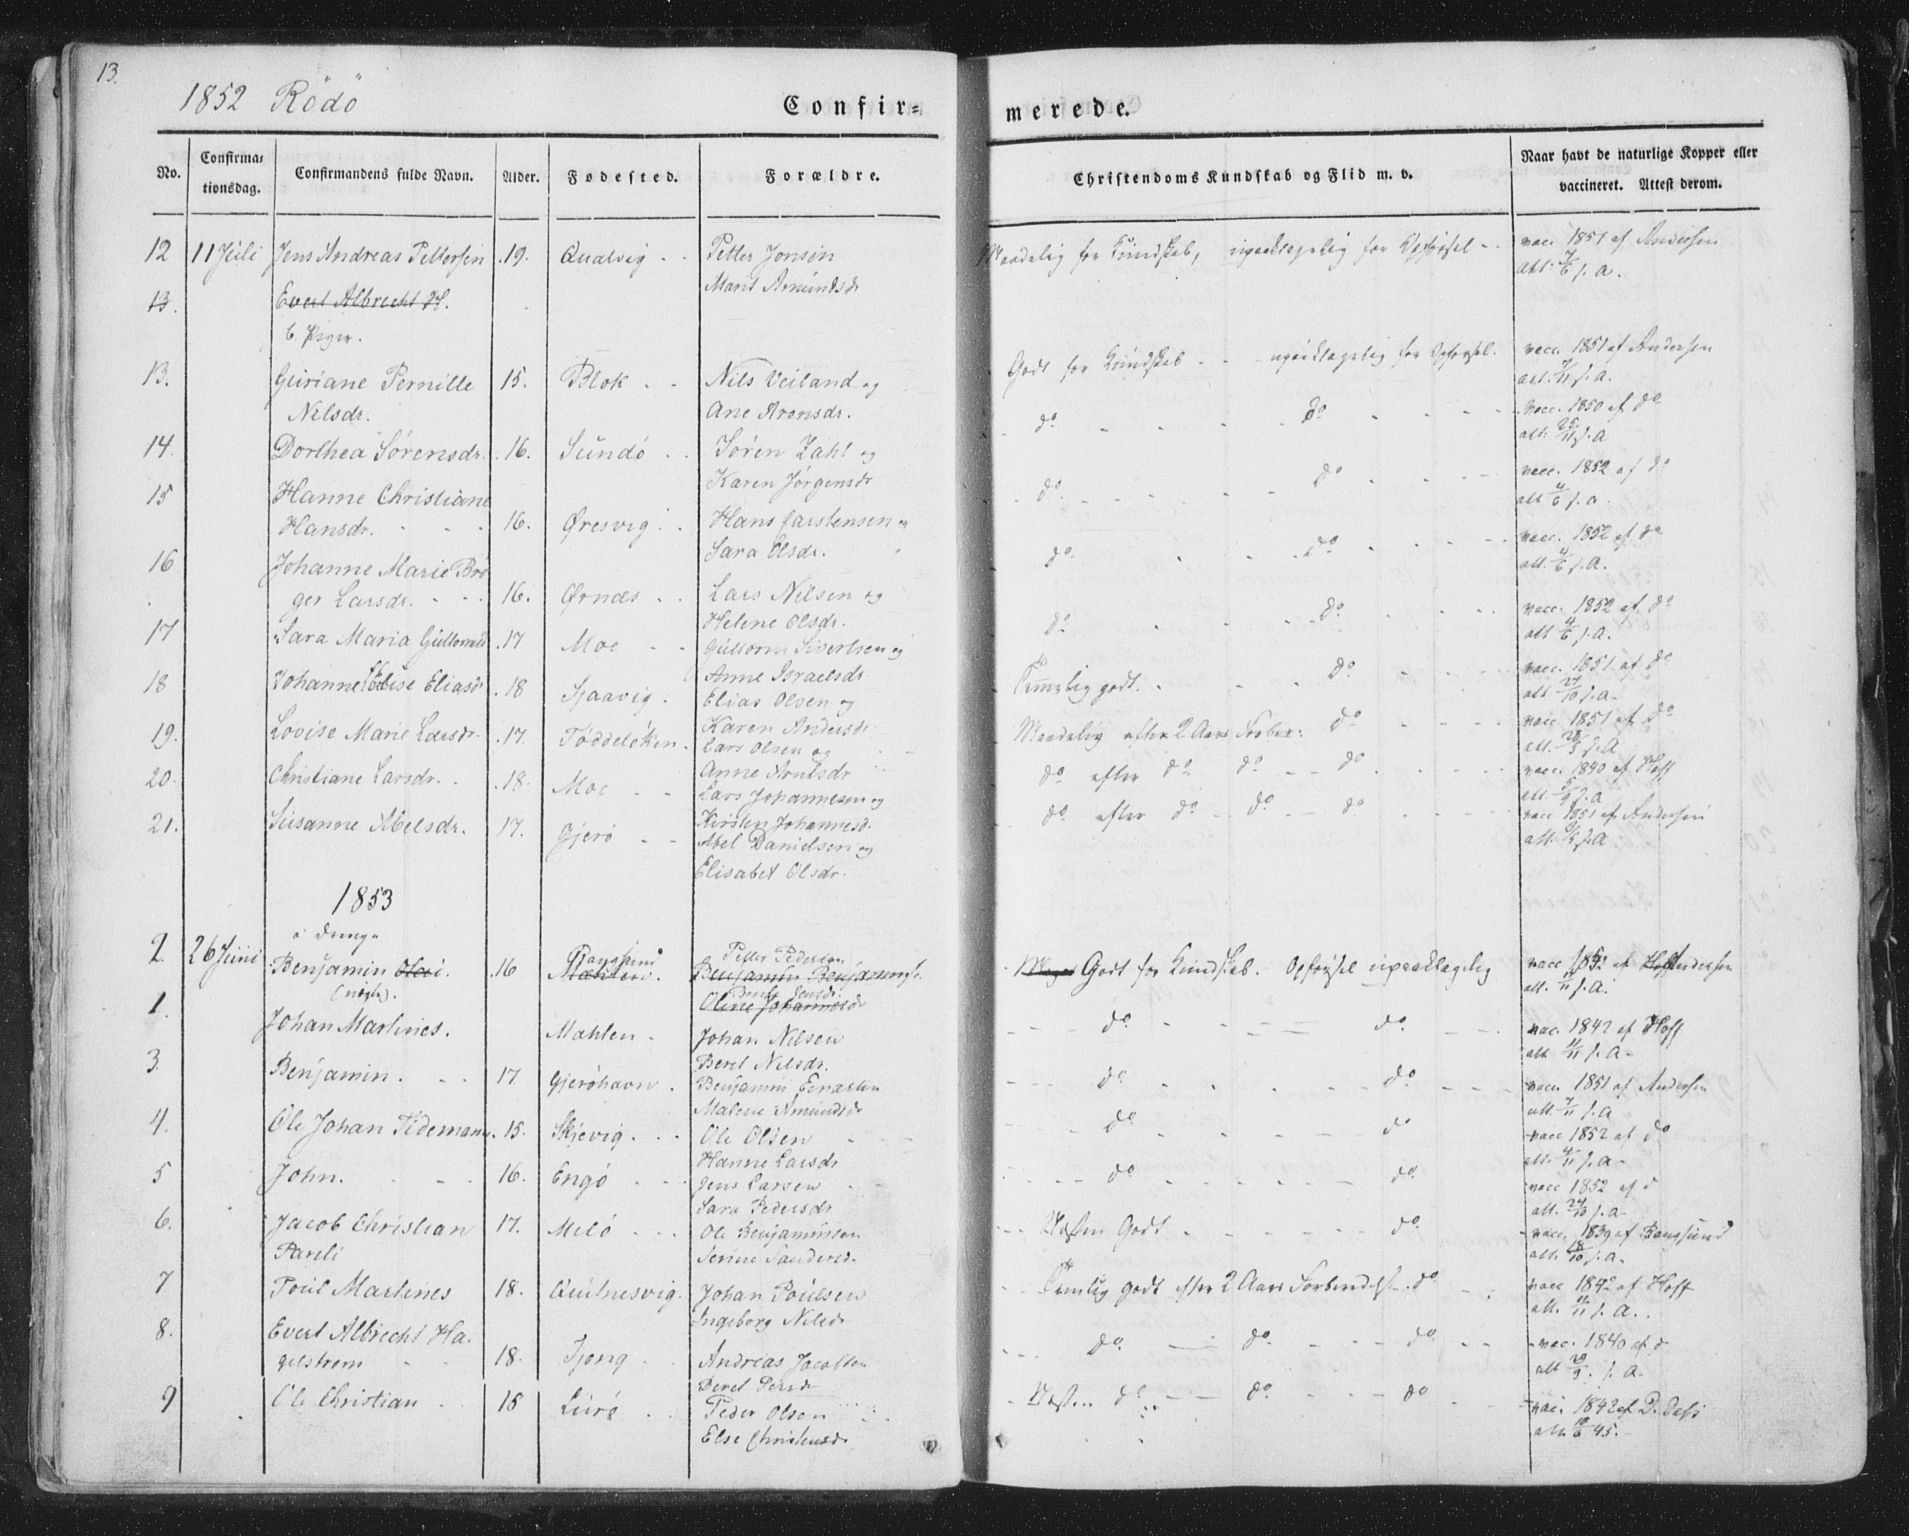 13.
1852 Rödö
Confir=
merede.
No.
Confirma=
tionsdag.
Confirmandens fulde Navn.
Alder.
Fødested.
Forældre.
Christendoms Kundskab og Flid m. v.
Naar havt de naturlige Kopper eller
vaccineret. Attest derom.
12 11 Juli Jens Andreas Pettersen 19. Qualvig Petter Jonsen Maadelig for Kundskab, upaaklagelig for Opførsel vacc. 1851 af Andersen
Marit Amundsdr att. 7/6 s. A.
13. Evert Albrecht H.
6 Piger.
13. Guriane Pernille 15. Blok Nils Veiland og Godt for Kundskab upaaklagelig for Opførsel. vacc. 1851 af Andersen
Nilsdr. Ane Aronsdr. att. 7/11 s. A.
14. Dorthea Sørensdr. 16. Sundö Søren Zahl og do do vacc. 1850 af do
Karen Jørgensdr att. 25/11 s. A
15 Hanne Christiane do do vacc. 1852 af do
Hansdr. 16. Øresvig Hans Carstensen og att 4/6 s. a.
Sara Olsdr.
16 Johanne Marie Brö do do vacc. 1852 af do
ger Larsdr. 16. Ørnæs Lars Nilsen og att. 4/6 s. A.
Helene Olsdr.
17 Sara Maria Guttormsdr 17 Moe Guttorm Sivertsen og do do vacc. 1852 af do
Anne Israelsdr att 4/6 s. A.
18 Johanne Elise Eliasdr 18 Sjaavig Elias Olsen og Temelig godt. do vacc. 1851 af do
Karen Andersdr att 27/10 s. A.
19. Lovise Marie Larsdr. 17. Toddeløken Lars Olsen og Maadelig efter 2 Aars Forber: do vacc 1851 af do
Anne Arntsdr att. 28/5 s. A
20. Christiane Larsdr. 18. Moe Lars Johannesen og do efter do do do vacc. 1840 af Hoff
Kirsten Johannesdr. att. 5/9 s. A
21. Susanne Abelsdr. 17. Gjerö Abel Danielsen og do efter do do do vacc 1851 af Andersen
Elisabet Olsdr. att. s. A
1853
9 Drenge
2. 26 Juni Benjamin Olai. 16 Mahlen. Benjamin Benjamins. Petter Pedersen Meget Godt for Kundskab. Opførsel upaaklagelig vacc 1852 af Hoff Andersen
(uægte). Oline Johannesdr att. /11 s. A.
1. Johan Martines. Mahlen Johan Nilsen do do vac. 1842 af Hoff
Beret Nilsdr. att. 4/11 s. A.
3. Benjamin. 17. Gjeröhavn Benjamin Enassen do do vacc. 1851 af Andersen
Malene Amundsdr att. 7/11 s. A
4. Ole Johan Tidemann. 15. Skjevig Ole Olsen do do vacc 1852 af do
Hanne Larsdr att. 4/11 s. A.
5 John. 16. Engö Jens Larsen do do. vacc 1852 af d
Sara Pedersdr att. 24/10 s. A
6. Jacob Christian 17. Melö Ole Benjaminsen Næsten Godt do vacc. 1839 af Bangsund
Pareli Serine Sandersdr. att. 18/10 s. A.
7 Poul Martines 18. Quitnesvig. Johan Poulsen Temlig godt efter 2 Aars Forberedelse do vacc 1842 af Hoff
Ingeborg Nilsdr att. /11 s. A.
8. Evert Albrecht Ha do do do vac. 1840 af d
gelstrøm 18. Tjong Andreas Jacobsen att 20/9 s. A.
Beret Persdr
9 Ole Christian 18 Lurö Peder Olsen Næsten do do do vac. 1842 af D. Dass
Else Christensdr att. 10/6 45.